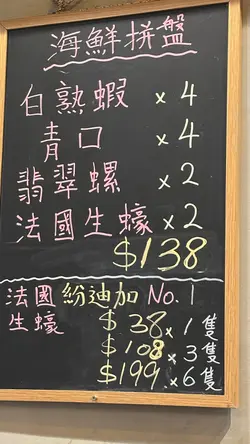 海鮮拼盤
白熟蝦 x 4
青口 x 4
翡翠螺 x 2
法國生蠔 x 2
$138
法國紛迪加 No.1
生蠔 $38 x 1隻
$108 x 3隻
$199 x 6隻